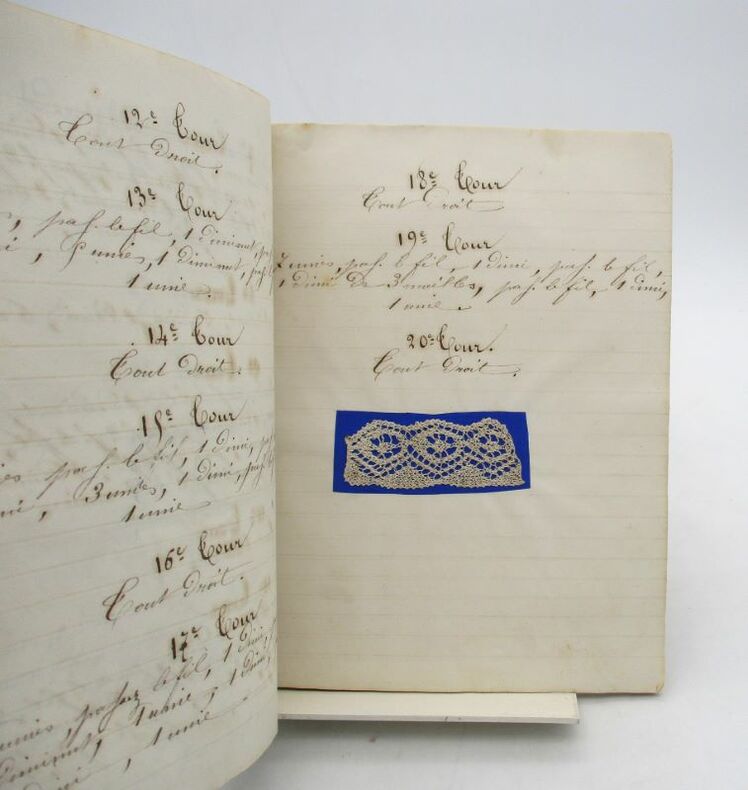 12e Tour
Tout Droit.
13e Tour
pas. le fil, 1 diminut,
5 unies, 1 diminut,
1 unie.
14e Tour
Tout Droit.
15e Tour
pas. le fil, 1 dimi,
3 unies, 1 dimi,
1 unie
16e Tour
Tout Droit.
17e Tour
unies, passez le fil, 1 dimi,
diminut, 1 unie, 1 dimi,
1 unie.
18e Tour
Tout Droit
19e Tour
unies, pas. le fil, 1 dimi, pas. le fil,
1 dimi de 3 mailles, pas. le fil, 1 dimi,
1 unie.
20e Tour.
Tout Droit.